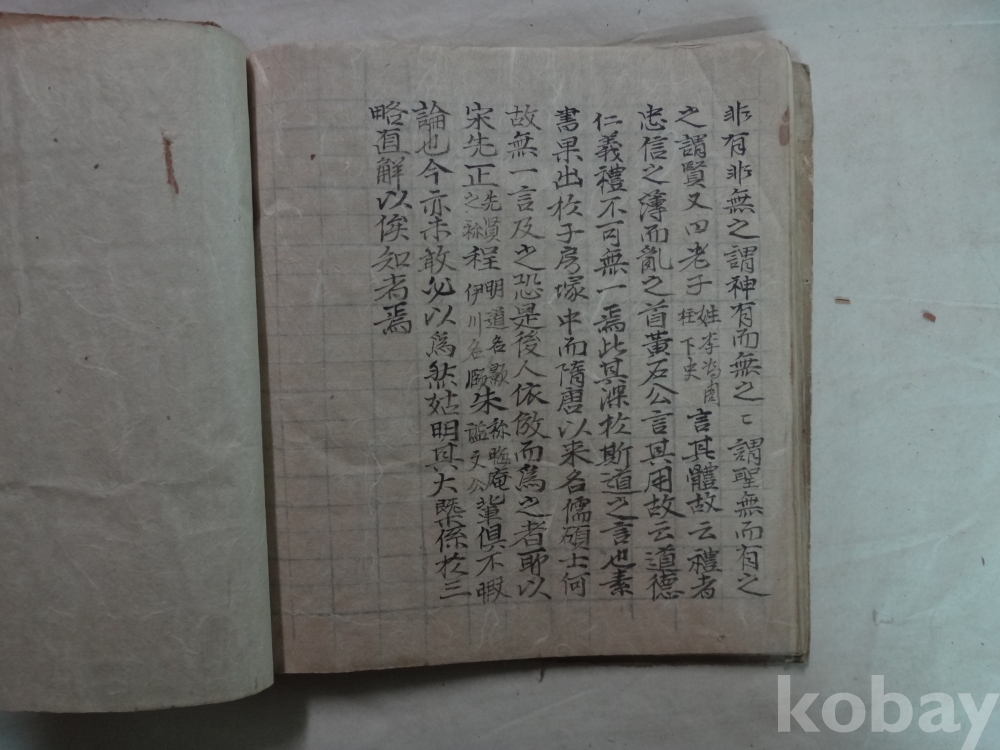 非有非無之謂神有而無之〻謂聖無而有之
之謂賢又曰老子姓李為周柱下史言其體故云禮者
忠信之薄而亂之首黃石公言其用故云道德
仁義禮不可無一焉此其深於斯道之言也素
書果出於子房塚中而隋唐以来名儒碩士何
故無一言及之恐是後人依倣而爲之者耶以
宋先正先賢之称程明道名顥伊川名頤朱称晦庵謚文公輩俱不暇
論也今亦未敢必以爲然姑明其大槩係於三
略直解以俟知者焉
kobay